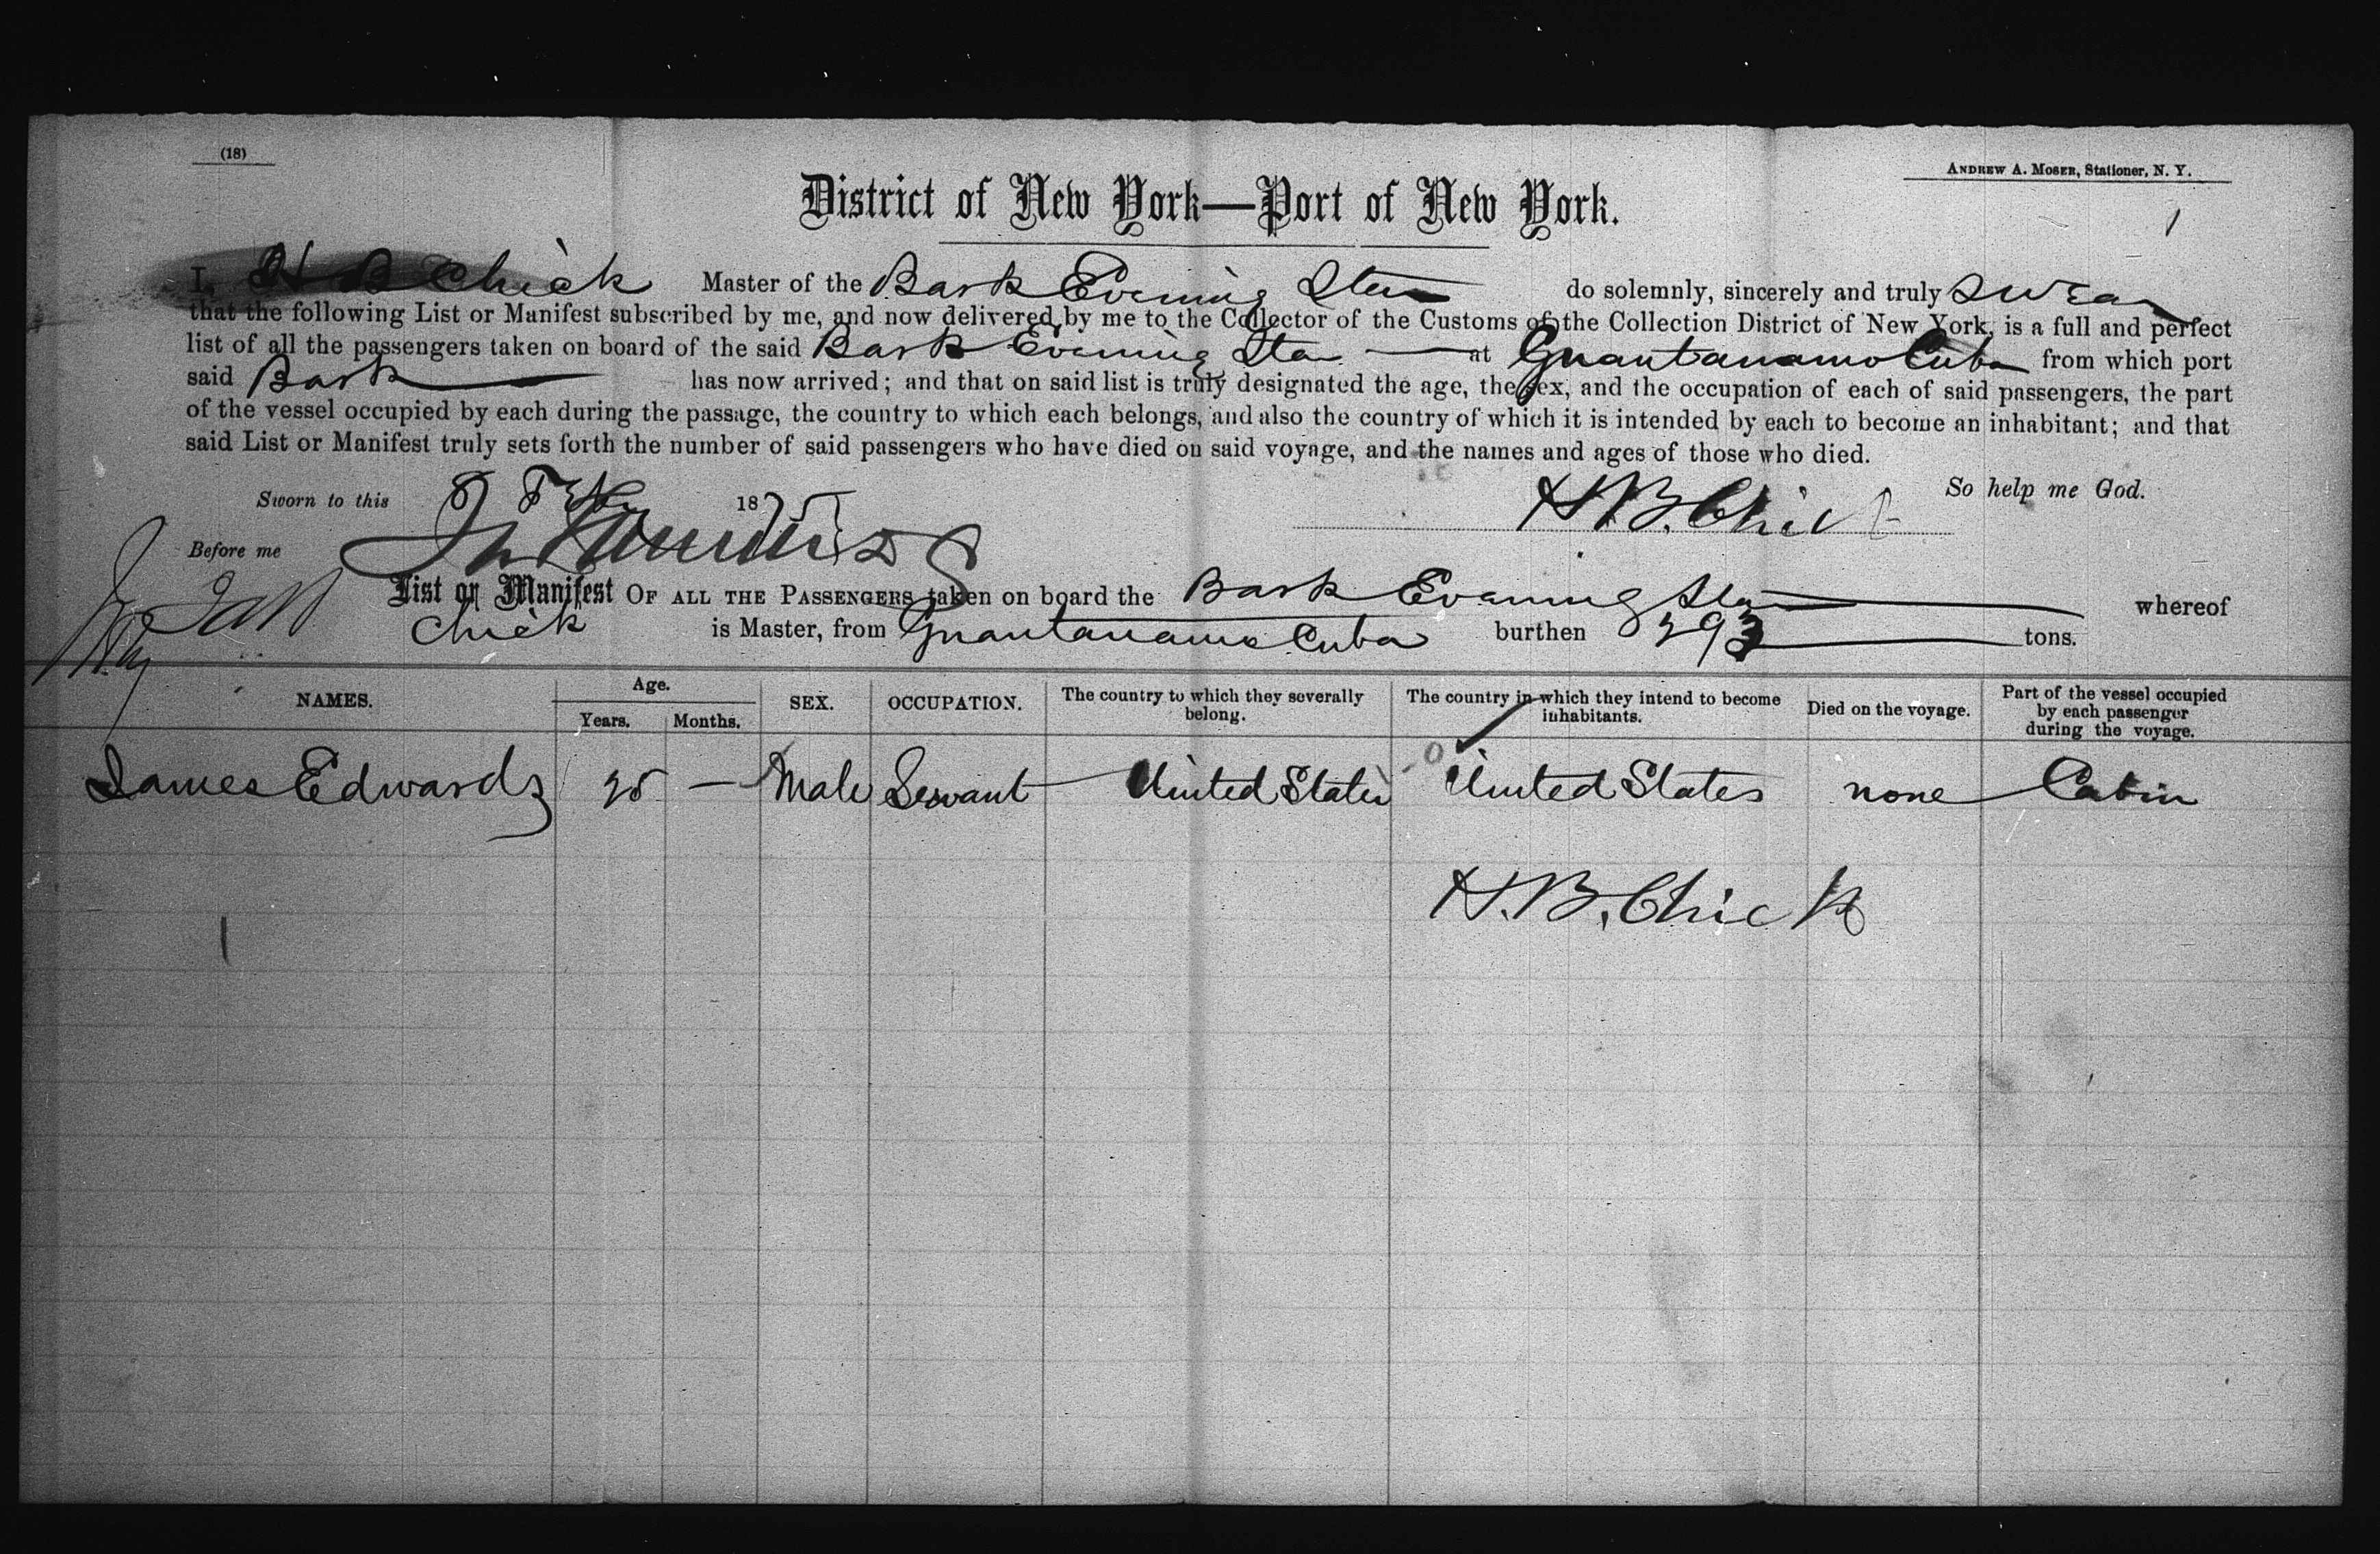 (18)
ANDREW A. MOSER, Stationer, N. Y.
1
District of New York—Port of New York.
I, H B Chick Master of the Bark Evening Star do solemnly, sincerely and truly swear
that the following List or Manifest subscribed by me, and now delivered by me to the Collector of the Customs of the Collection District of New York, is a full and perfect
list of all the passengers taken on board of the said Bark Evening Star at Guantanamo Cuba from which port
said Bark has now arrived; and that on said list is truly designated the age, the sex, and the occupation of each of said passengers, the part
of the vessel occupied by each during the passage, the country to which each belongs, and also the country of which it is intended by each to become an inhabitant; and that
said List or Manifest truly sets forth the number of said passengers who have died on said voyage, and the names and ages of those who died.
So help me God.
Sworn to this 8 1875
H. B. Chick
Before me
List or Manifest OF ALL THE PASSENGERS taken on board the Bark Evening Star whereof
Chick is Master, from Guantanamo Cuba burthen tons.
NAMES. Age. Years. Months. SEX. OCCUPATION. The country to which they severally belong. The country in which they intend to become inhabitants. Died on the voyage. Part of the vessel occupied by each passenger during the voyage.
James Edwards 25 — Male Servant United States United States none Cabin
H. B. Chick
1